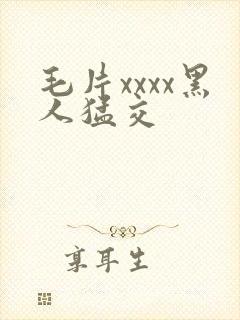 毛片xxxx黑
人猛交
享耳生